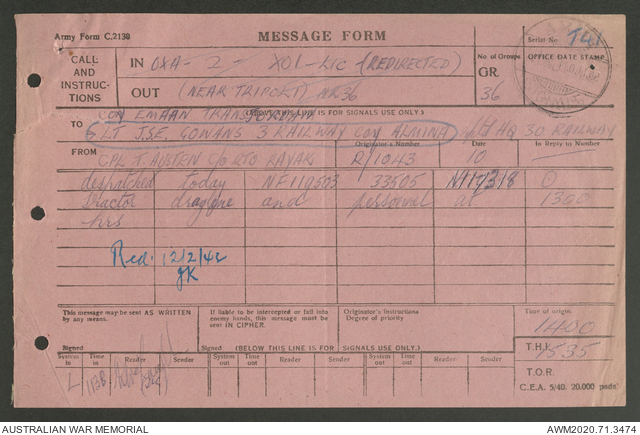 Army Form C.2130
MESSAGE FORM
Serial No.
CALL AND INSTRUCTIONS
IN OXA- 2 - (REDIRECTED)
No. of Groups
GR. 36
OFFICE DATE STAMP
OUT (NEAR TRIPOLI) NR36
(ABOVE THIS LINE IS FOR SIGNALS USE ONLY.)
TO COY EMAAN
LT J.S.E. GOWANS 3 RAILWAY COY ALMINA HQ 30 RAILWAY
FROM CPL T. AUSTEN C/O RTO RAYAK
Originator's Number R/1043
Date 10
In Reply to Number
despatched today NF119503 33505
tractor dragline and personnel at 1300
hrs
Red. 12/2/42
JK
This message may be sent AS WRITTEN by any means.
If liable to be intercepted or fall into enemy hands, this message must be sent IN CIPHER.
Originator's Instructions Degree of priority
Time of origin 1400
Signed
Signed
(BELOW THIS LINE IS FOR SIGNALS USE ONLY.)
T.H.I. 1535
System in
Time in
Reader
Sender
System out
Time out
Reader
Sender
System out
Time out
Reader
Sender
T.O.R.
C.E.A. 5/40. 20.000 pads
AUSTRALIAN WAR MEMORIAL
AWM2020.71.3474